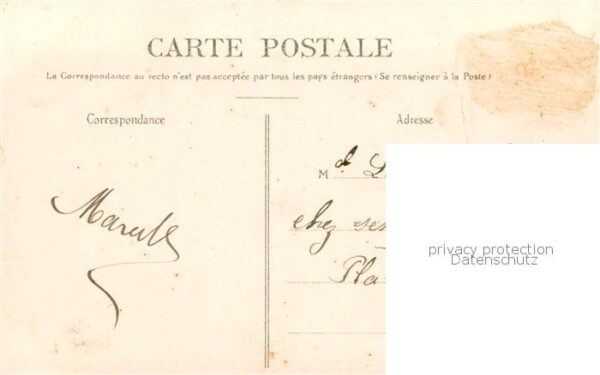 CARTE POSTALE
La Correspondance au recto n'est pas acceptée par tous les pays étrangers (Se renseigner à la Poste)
Correspondance
Adresse
M
chez
privacy protection
Datenschutz